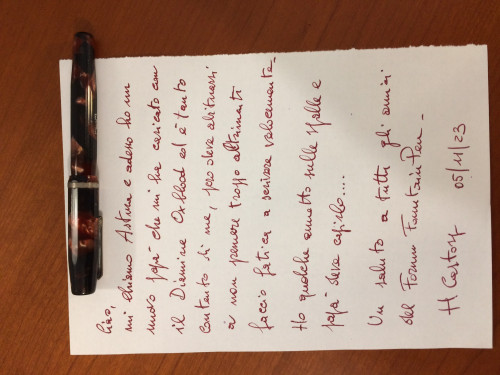 Ciao,
mi chiamo Astura e adesso ho un
nuovo papà che mi ha caricato con
il Diamine Oxblood ed è tanto
contento di me, però deve abituarsi
a non premere troppo altrimenti
faccio fatica a scrivere velocemente.
Ho qualche annetto sulle spalle e
papà deve capirlo....
Un saluto a tutti gli amici
del Forum FountainPen -
H Castorp
05/11/23